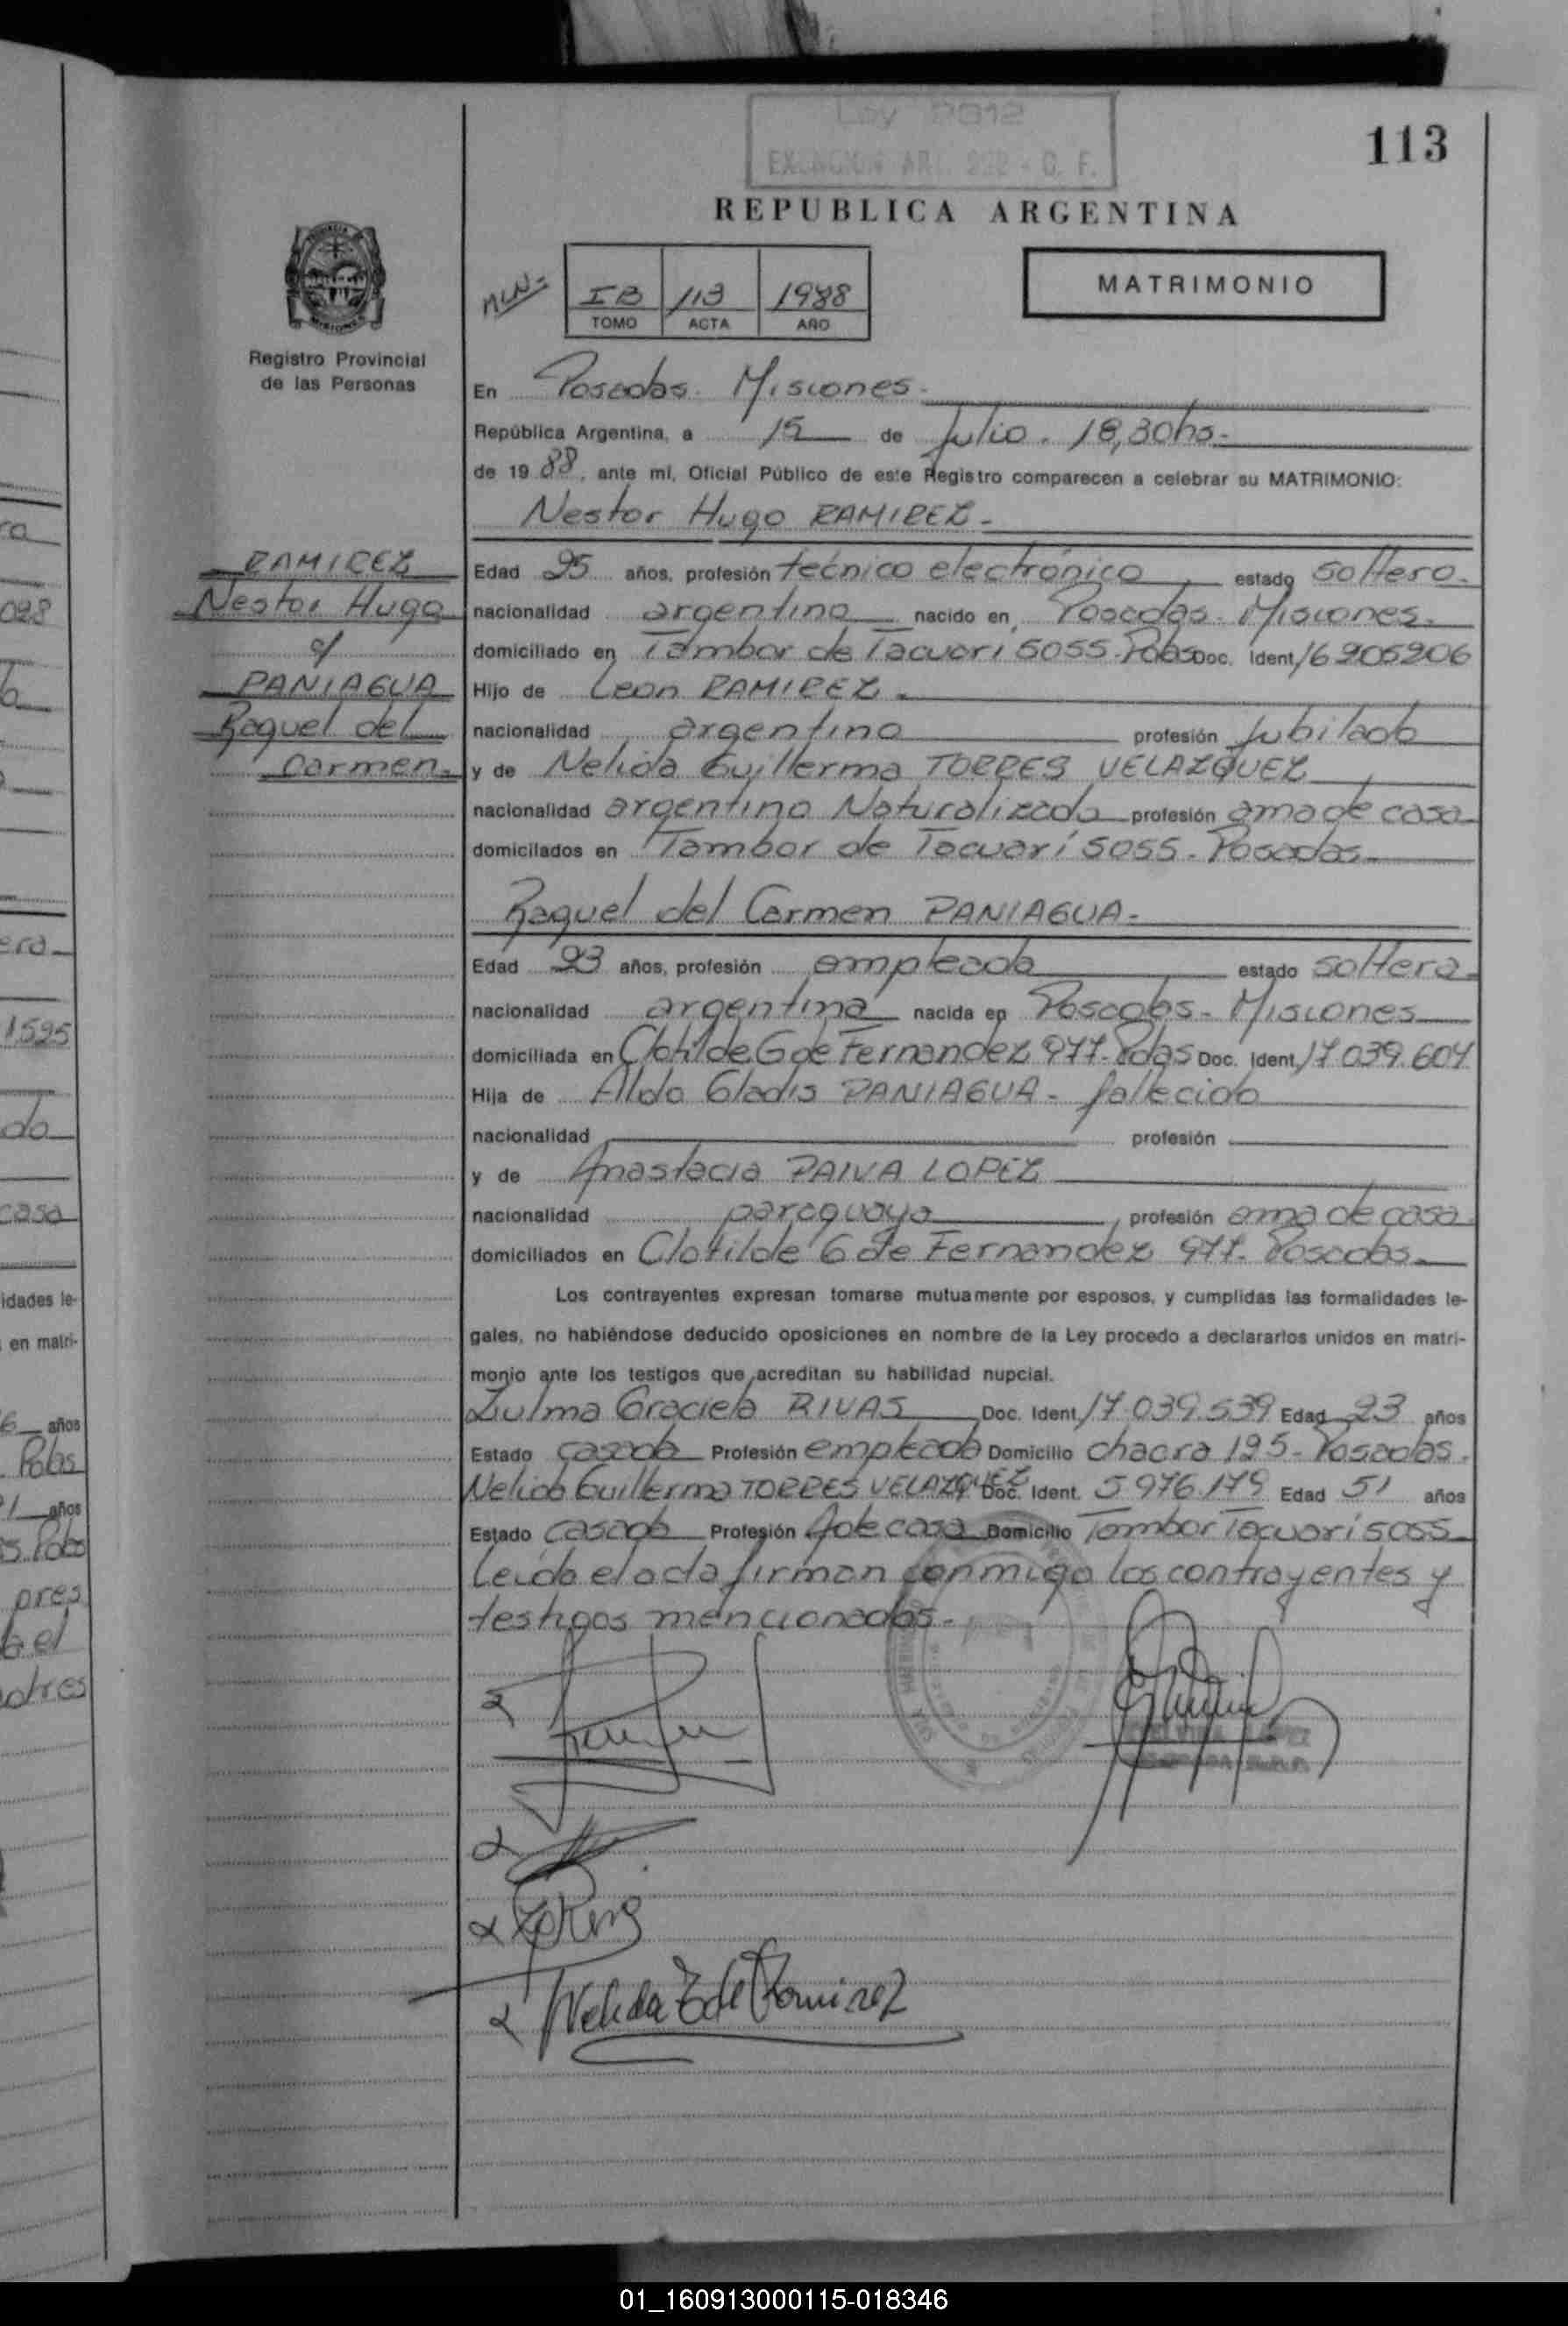 Ley 2012
EXENCION ART. 222 - C. F.
113
REPUBLICA ARGENTINA
MATRIMONIO
IB 113 1988
TOMO ACTA AÑO
PROVINCIA DE
MISIONES
Registro Provincial
de las Personas
En Posadas. Misiones.
República Argentina, a 15 de Julio. 18,30hs.
de 1988, ante mí, Oficial Público de este Registro comparecen a celebrar su MATRIMONIO:
Nestor Hugo RAMIREZ
RAMIREZ
Nestor Hugo
c/
PANIAGUA
Raquel del
Carmen
Edad 25 años, profesión técnico electrónico estado soltero.
nacionalidad argentino nacido en Posadas. Misiones.
domiciliado en Tambor de Tacuarí 5055. Pdas Doc. Ident. 16905906
Hijo de Leon RAMIREZ
nacionalidad argentino profesión Jubilado
y de Nelida Guillerma TORRES VELAZQUEZ
nacionalidad argentina Naturalizada profesión ama de casa
domicilados en Tambor de Tacuarí 5055. Posadas.
Raquel del Carmen PANIAGUA
Edad 23 años, profesión empleada estado soltera
nacionalidad argentina nacida en Posadas - Misiones
domiciliada en Clotilde G de Fernandez 977. Pdas Doc. Ident. 17 039.604
Hija de Aldo Gladis PANIAGUA - fallecido
nacionalidad profesión
y de Anastacia PAIVA LOPEZ
nacionalidad paraguaya profesión ama de casa
domiciliados en Clotilde G de Fernandez 977. Posadas.
Los contrayentes expresan tomarse mutuamente por esposos, y cumplidas las formalidades le-
gales, no habiéndose deducido oposiciones en nombre de la Ley procedo a declararlos unidos en matri-
monio ante los testigos que acreditan su habilidad nupcial.
Zulma Graciela RIVAS Doc. Ident. 17.039.539 Edad 23 años
Estado casada Profesión empleada Domicilio chacra 125 - Posadas.
Nelida Guillerma TORRES VELAZQUEZ Doc. Ident. 5 976.179 Edad 51 años
Estado casada Profesión A de casa Domicilio Tambor Tacuarí 5055
Leída el acta firman conmigo los contrayentes y
testigos mencionados.
Nelida T de Ramirez
ra
098
era
1.595
do
casa
idades le-
en matri-
6 años
Pdas
1 años
5. Pdas
pres
a el
dres
01_160913000115-018346